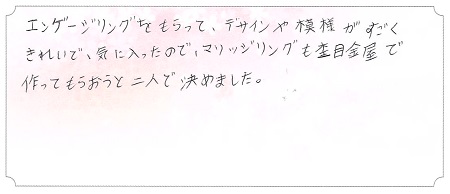 エンゲージリングをもらって、デザインや模様がすごく
きれいで、気に入ったので、マリッジリングも杢目金屋で
作ってもらおうと二人で決めました。